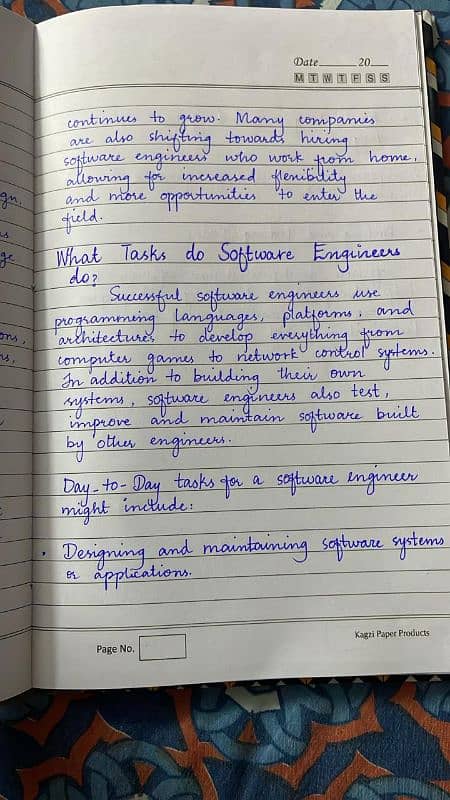 Date 20
M T W T F S S
continues to grow. Many companies
are also shifting towards hiring
software engineers who work from home,
allowing for increased flenibility
and more opportunities to enter the
field.
What Tasks do Software Engineers
do?
Successful software engineers use
programming languages, platforms, and
architectures to develop everything from
computer games to network control systems.
In addition to building their own
systems, software engineers also test,
improve and maintain software built
by other engineers.
Day-to-Day tasks for a software engineer
might include:
• Designing and maintaining software systems
or applications.
Kagzi Paper Products
Page No.